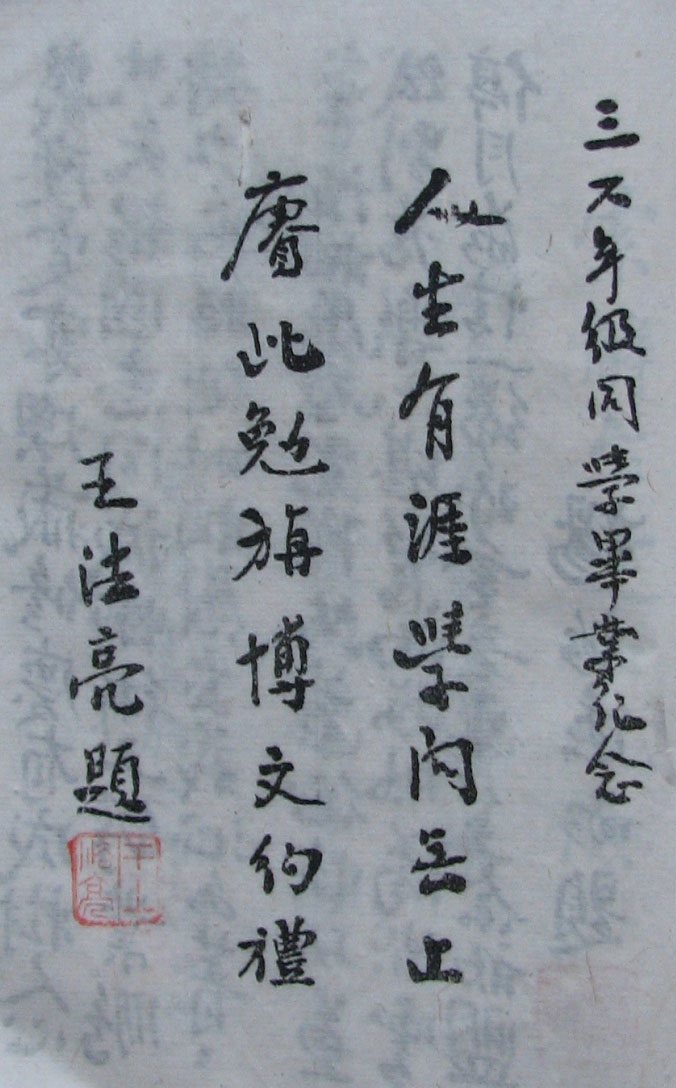 三六年级同學畢業纪念
人生有涯學问無止
賡此勉旃博文約禮
王法亮題